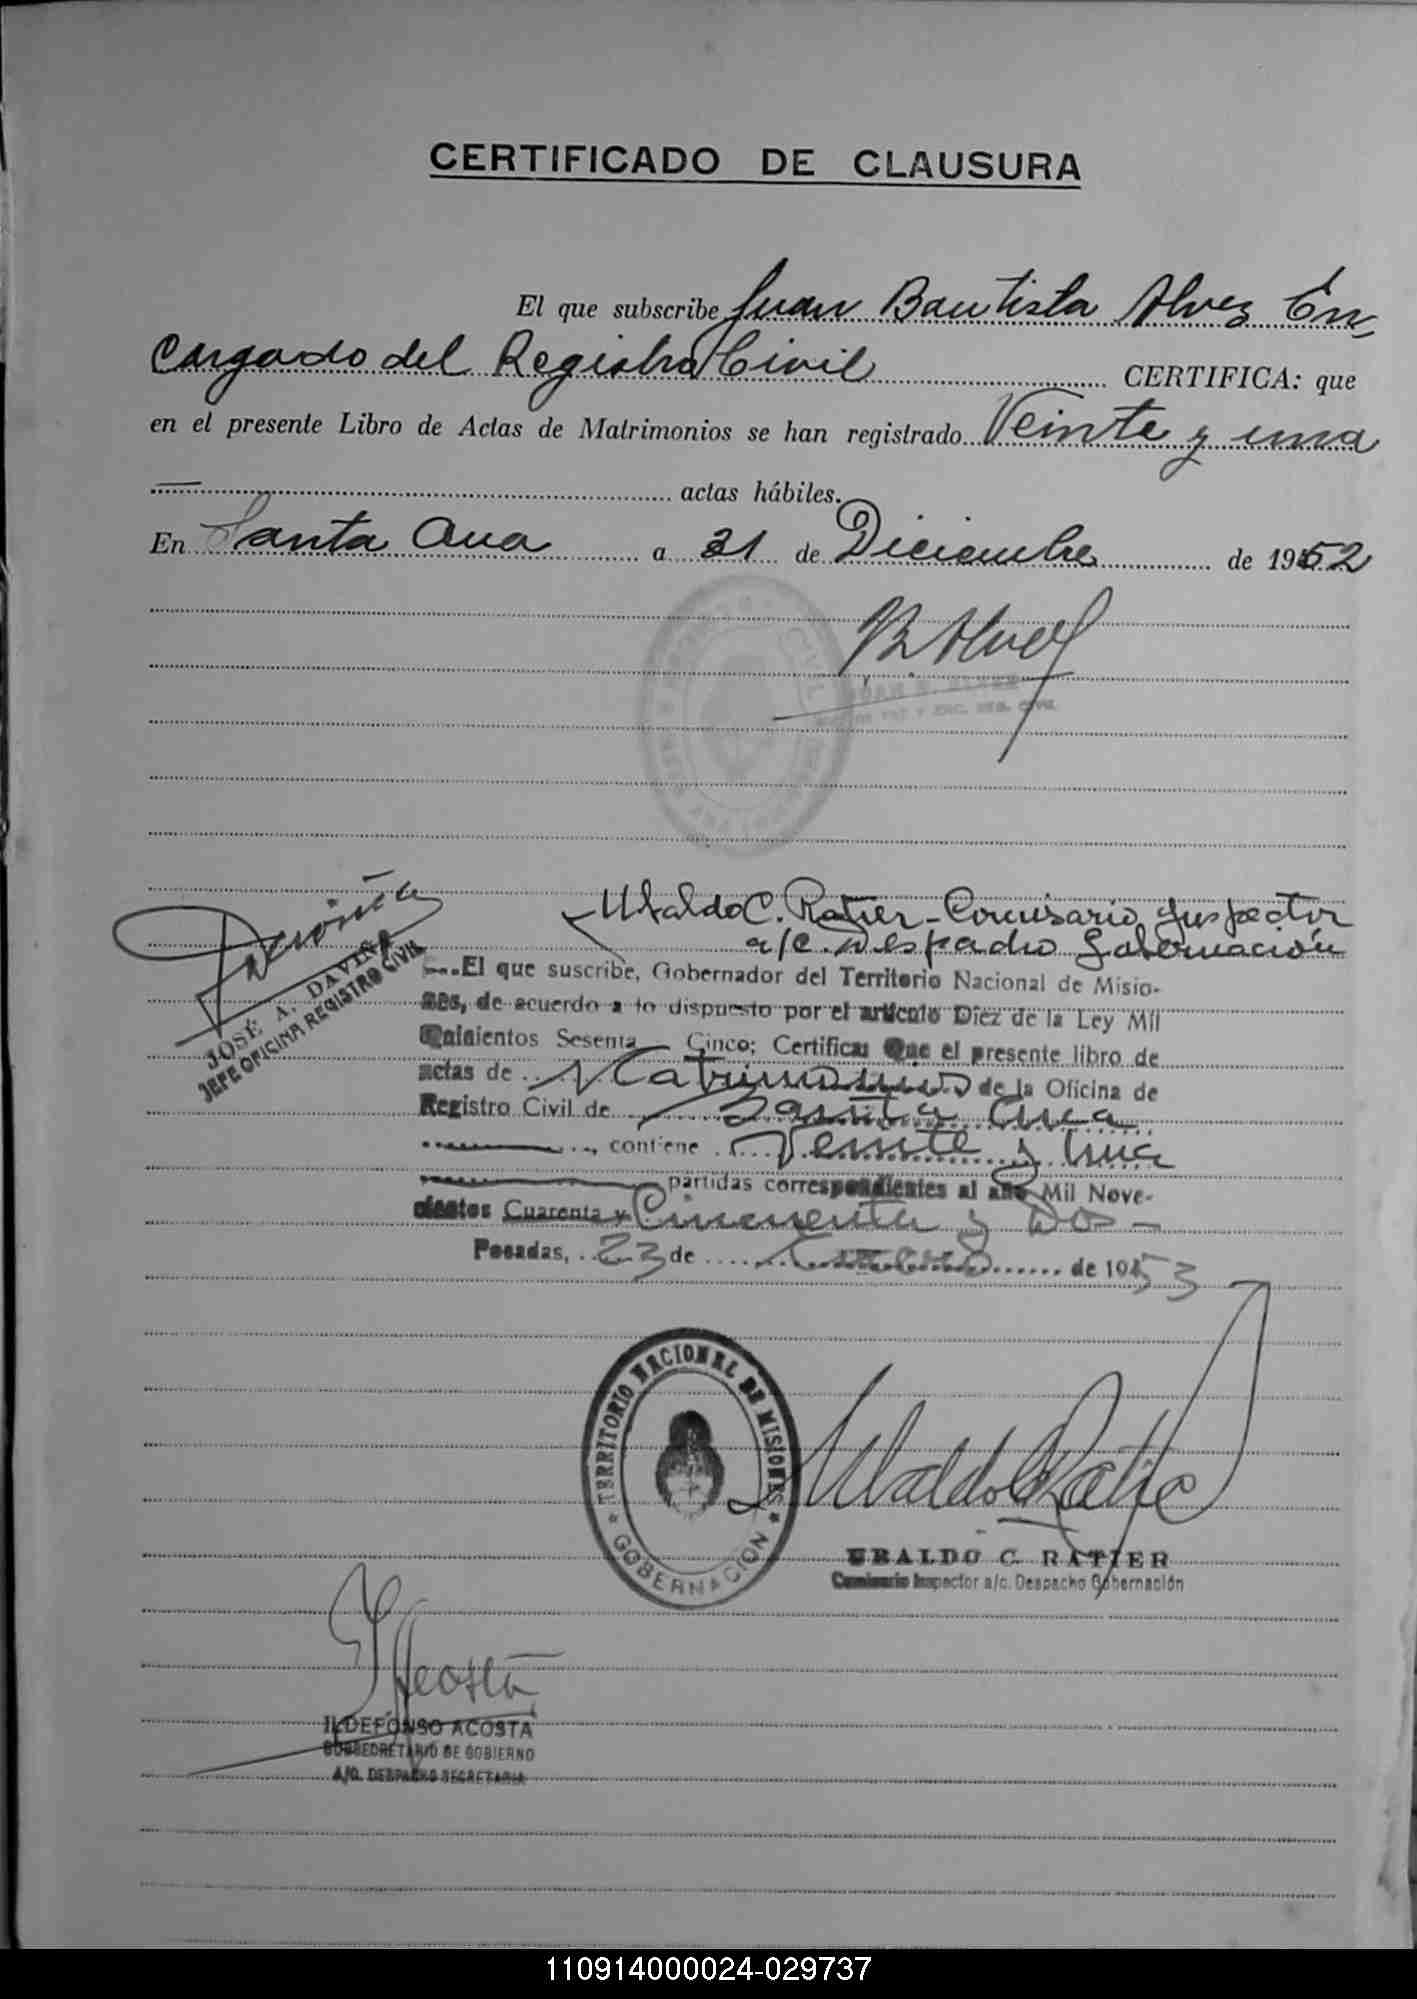 CERTIFICADO DE CLAUSURA
El que subscribe Juan Bautista Alvez En
cargado del Registro Civil CERTIFICA: que
en el presente Libro de Actas de Matrimonios se han registrado Veinte y una
— actas hábiles.
En Santa Ana a 31 de Diciembre de 1952
JBAlvez
Daviña
JOSÉ A. DAVIÑA
JEFE OFICINA REGISTRO CIVIL
Ubaldo C. Ratier - Comisario Inspector
a/c. Despacho Gobernación
El que suscribe, Gobernador del Territorio Nacional de Misio-
nes, de acuerdo a lo dispuesto por el artículo Diez de la Ley Mil
Quinientos Sesenta Cinco; Certifica: Que el presente libro de
actas de Matrimonios de la Oficina de
Registro Civil de Santa Ana
contiene Veinte y Una
partidas correspondientes al año Mil Nove-
cientos Cuarenta y Cincuenta y Dos -
Posadas, 23 de de 1953
TERRITORIO NACIONAL DE MISIONES
* GOBERNACION *
Ubaldo C Ratier
UBALDO C. RATIER
Comisario Inspector a/c. Despacho Gobernación
IAcosta
ILDEFONSO ACOSTA
SUBSECRETARIO DE GOBIERNO
A/C. DESPACHO SECRETARIA
110914000024-029737